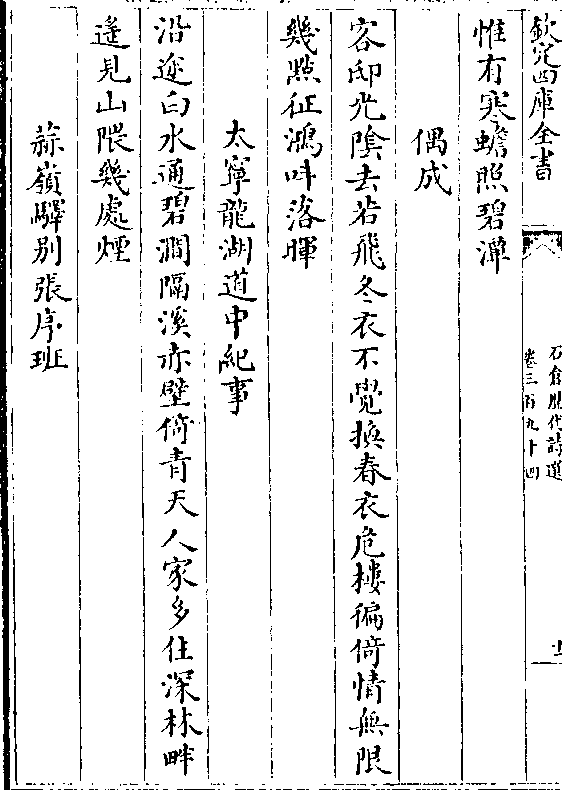 欽定四庫全書
石倉歷代詩選
卷三百九十四
惟有寒蟾照碧潭
偶成
客邸光陰去若飛冬衣不覺換春衣危樓徧倚情無限
幾點征鴻呌落暉
太寧龍湖道中紀事
沿途白水通碧澗隔溪赤壁倚青天人家多住深林畔
遙見山隈幾處煙
蒜嶺驛别張序班